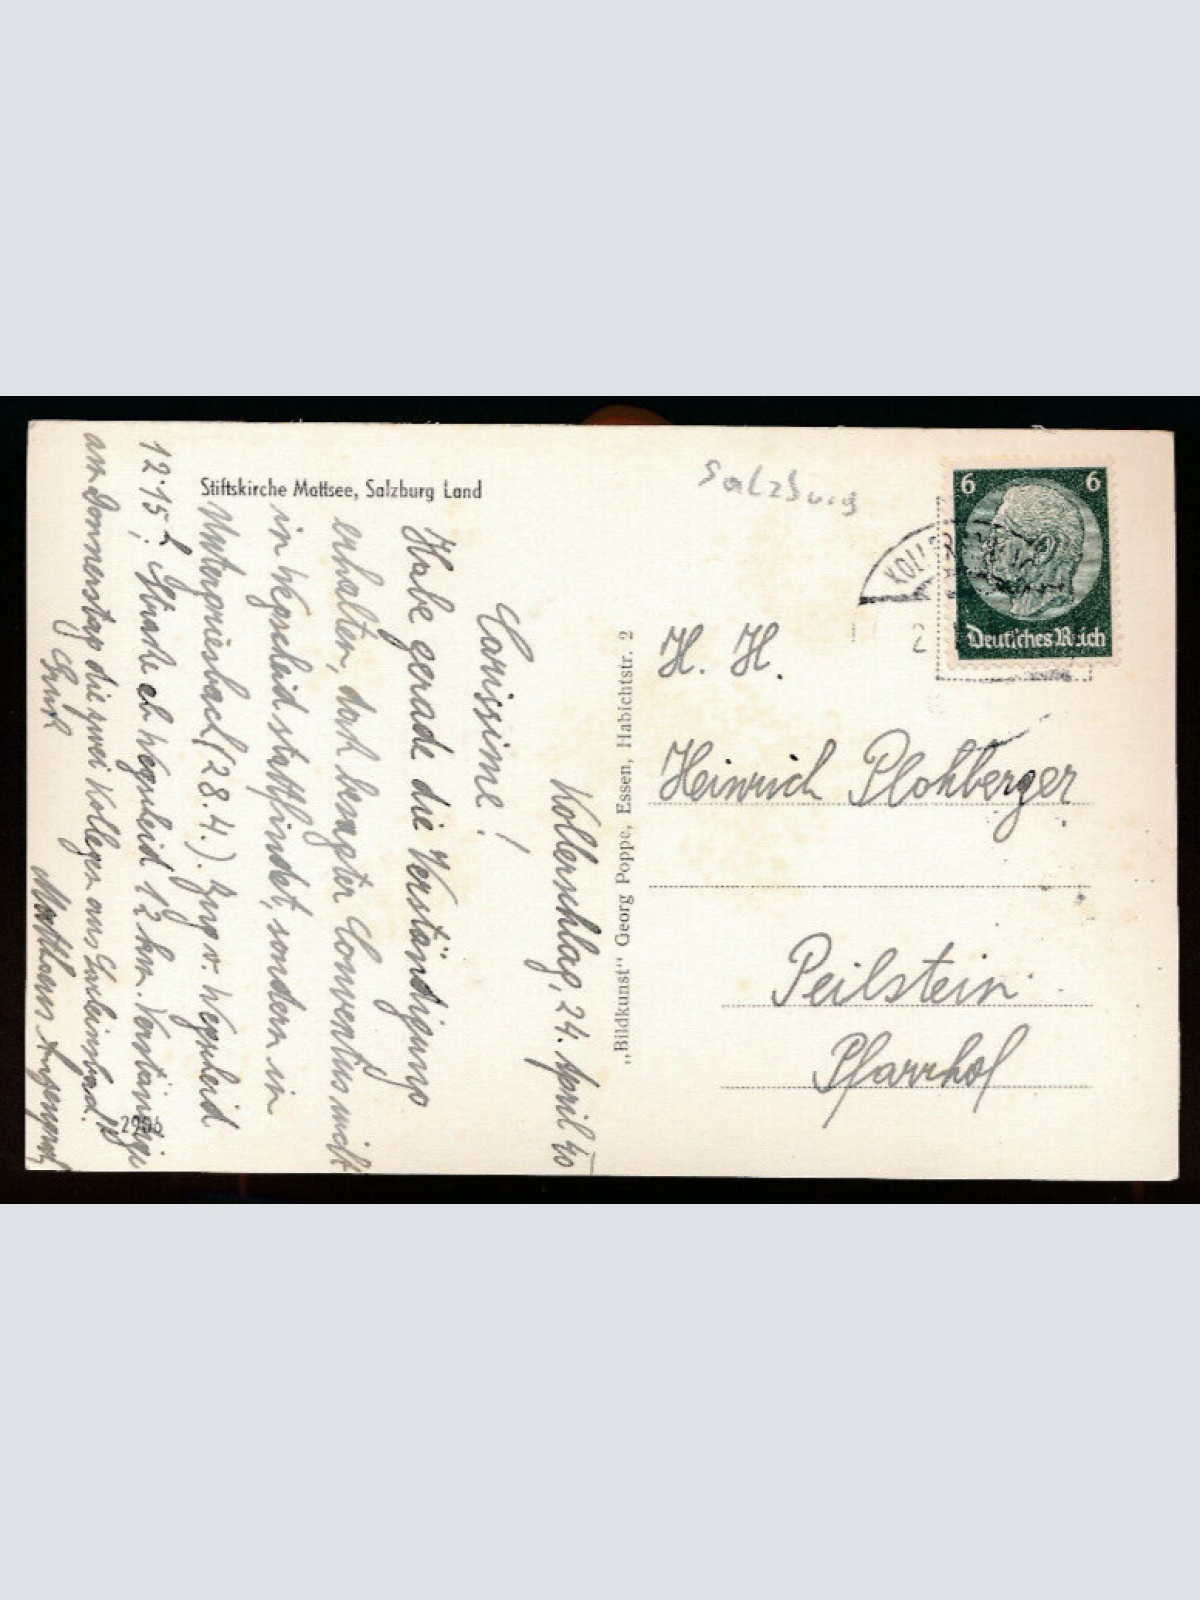 Stiftskirche Mattsee, Salzburg Land
Salzburg
6 6
Deutsches Reich
KOLL
2
H. H.
Heinrich Plohberger
Peilstein
Pfarrhof
„Bildkunst“ Georg Poppe, Essen, Habichtstr. 2
Kollerschlag, 24. April 40
Carissime!
Habe gerade die Verständigung
erhalten, daß besagter Conventus nicht
in Wegscheid stattfindet, sondern in
Untergriesbach (28.4.). Zug v. Wegscheid
12.15, Straße ab Wegscheid 12 km. Verständige
am Donnerstag die zwei Kollegen aus
Gruß
Matthäus
2906